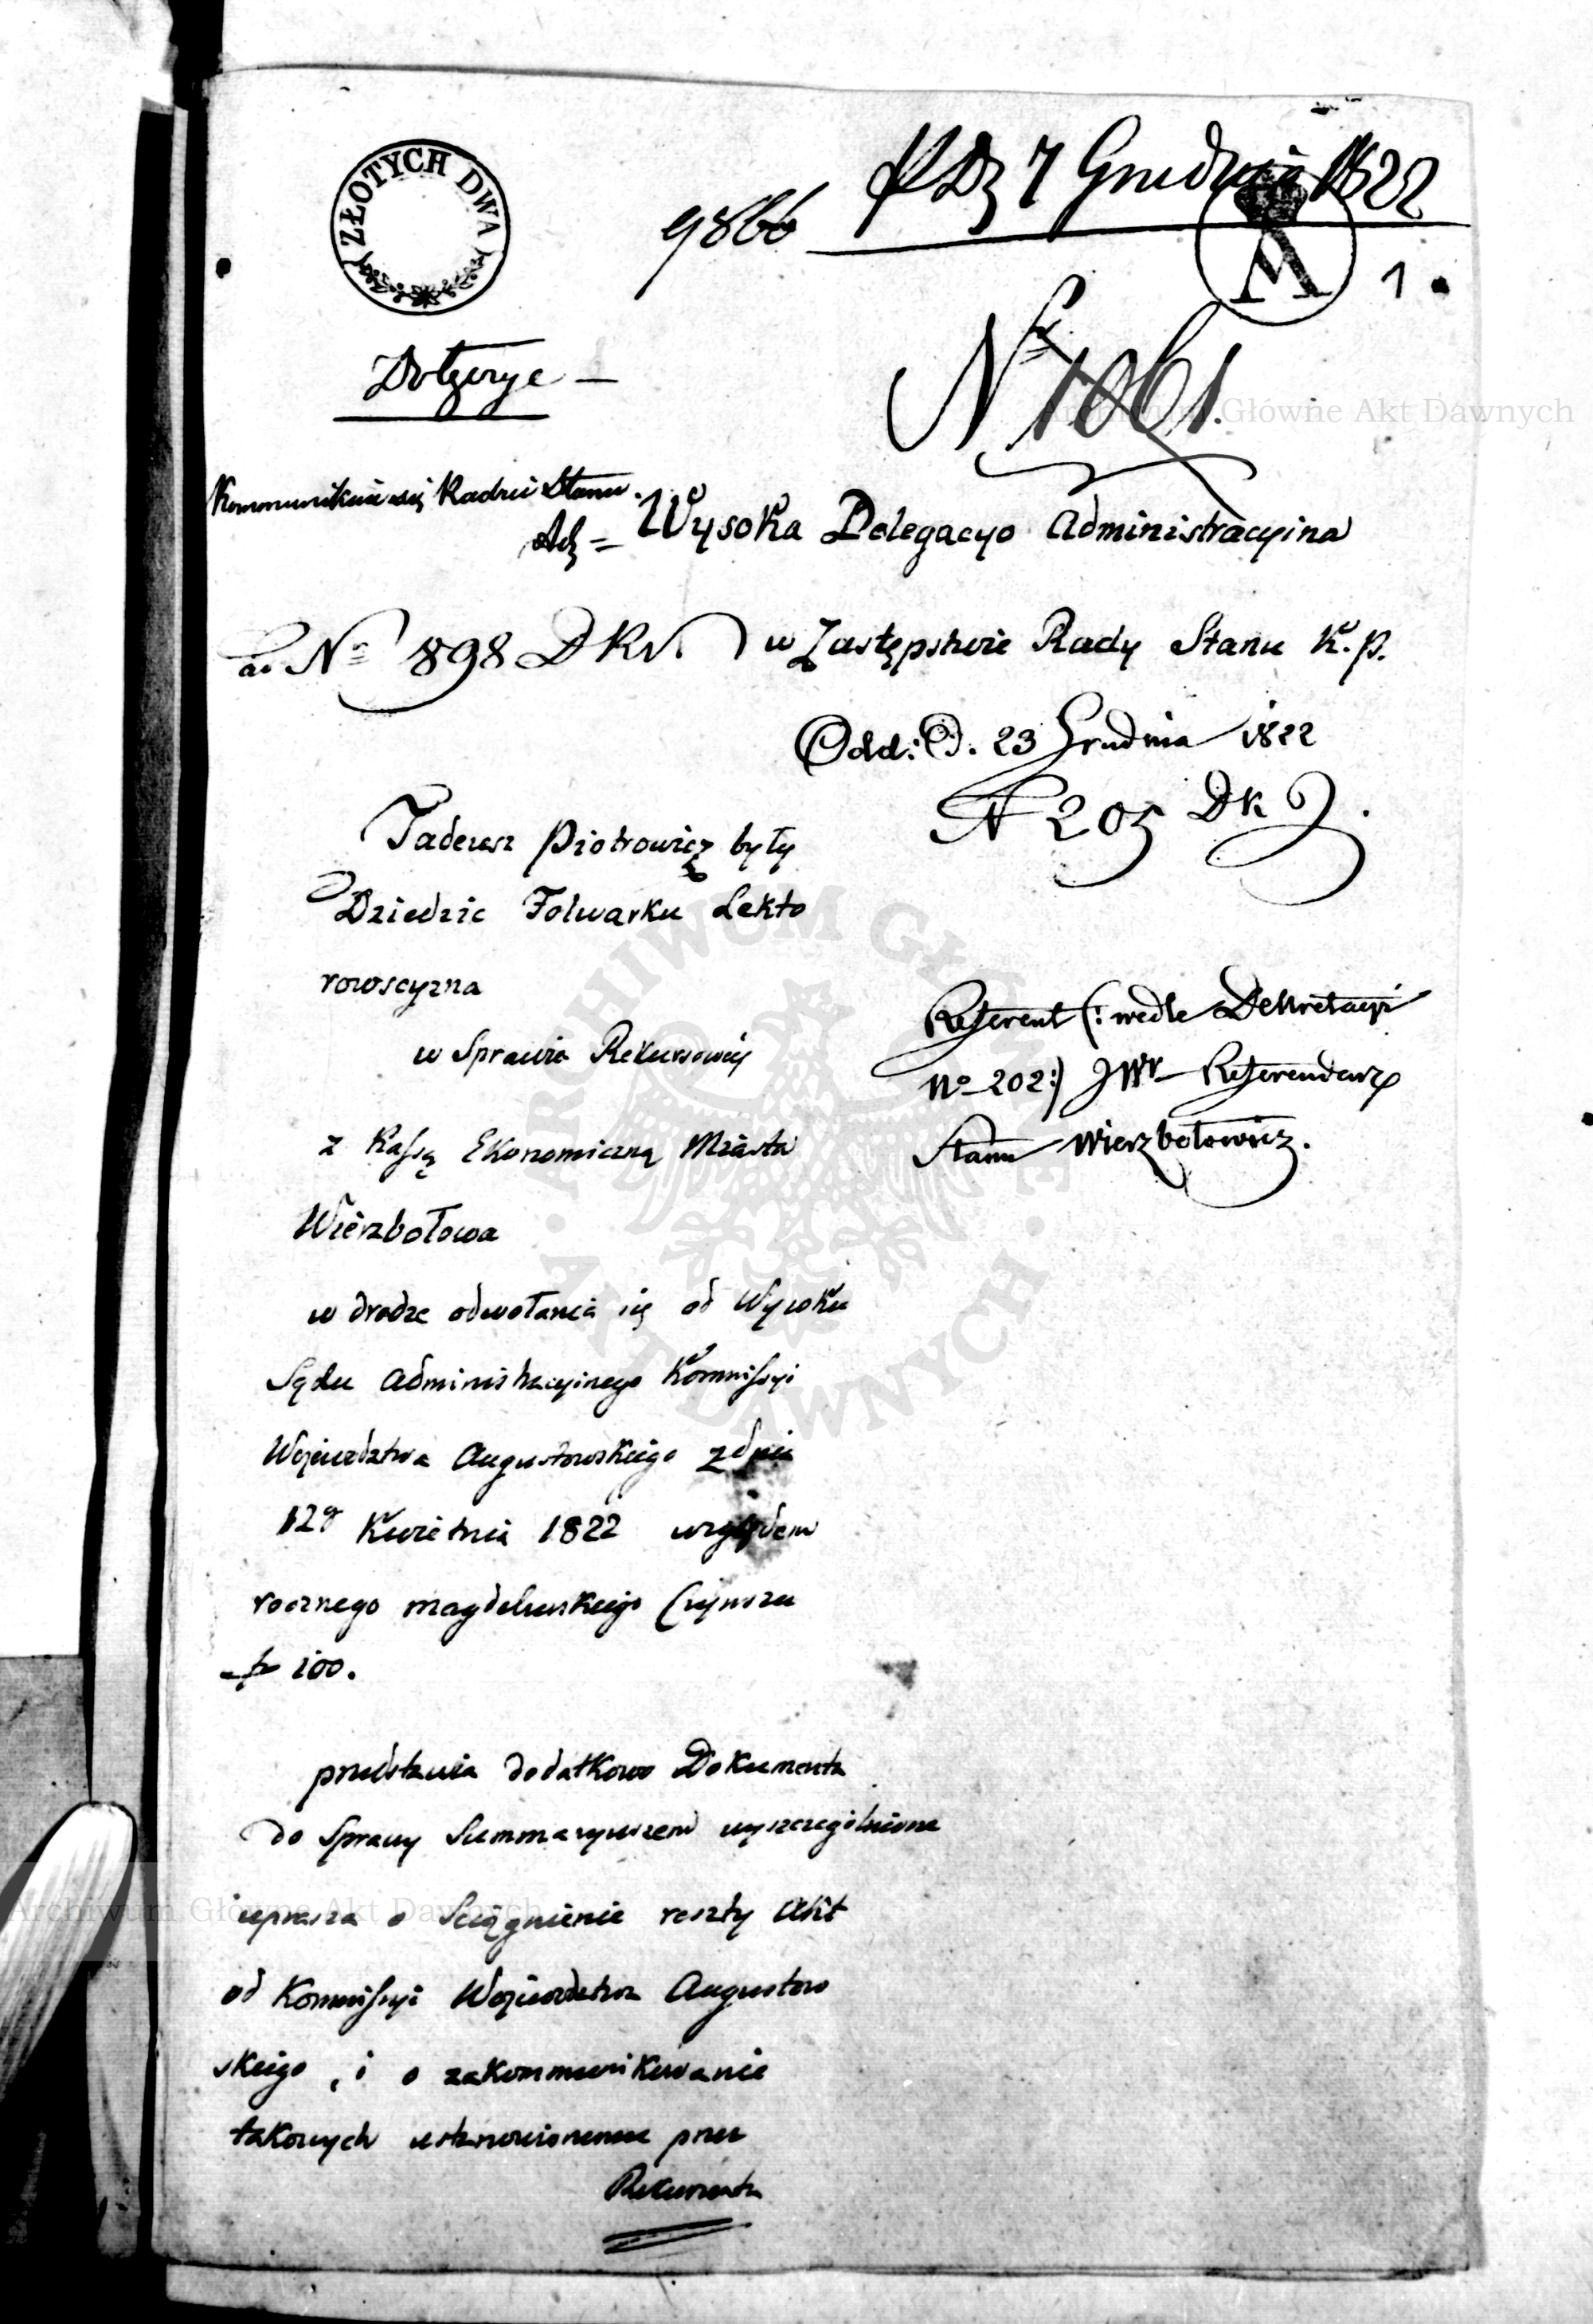 ZŁOTYCH DWA
9866
7 Grudnia 1822
1
Dołącza
Nr 1061.
Kommunikuie się Radzie Stanu.
Wysoka Delegacyo Administracyina
ad No 898 DKN. w Zastępstwie Rady Stanu K. P.
Odd: D. 23 Grudnia 1822
N 205 DK
Tadeusz Piotrowicz były
Dziedzic Folwarku Lekto
rowsczyzna
w Sprawie Rekursowey
z Kassą Ekonomiczną Miasta
Wierzbołowa
w drodze odwołania się od Wyroku
Sądu Administracyinego Kommissyi
Woiewództwa Augustowskiego z dnia
12go Kwietnia 1822 względem
rocznego magdeburskiego Czynszu
zł 100.
Referent (: wedle Dekretacyi
No 202:) JWr Referendarz
Stanu Wierzbołowicz.
przedstawia dodatkowo Dokumenta
do Sprawy Summaryuszem wyszczególnione
i uprasza o Sciągnienie reszty Akt
od Kommissyi Woiewództwa Augustow
skiego, i o zakommunikowanie
takowych ustanowionemu przez
Rekurenta
Archiwum Główne Akt Dawnych
Archiwum Główne Akt Dawnych
ARCHIWUM GŁÓWNE AKT DAWNYCH